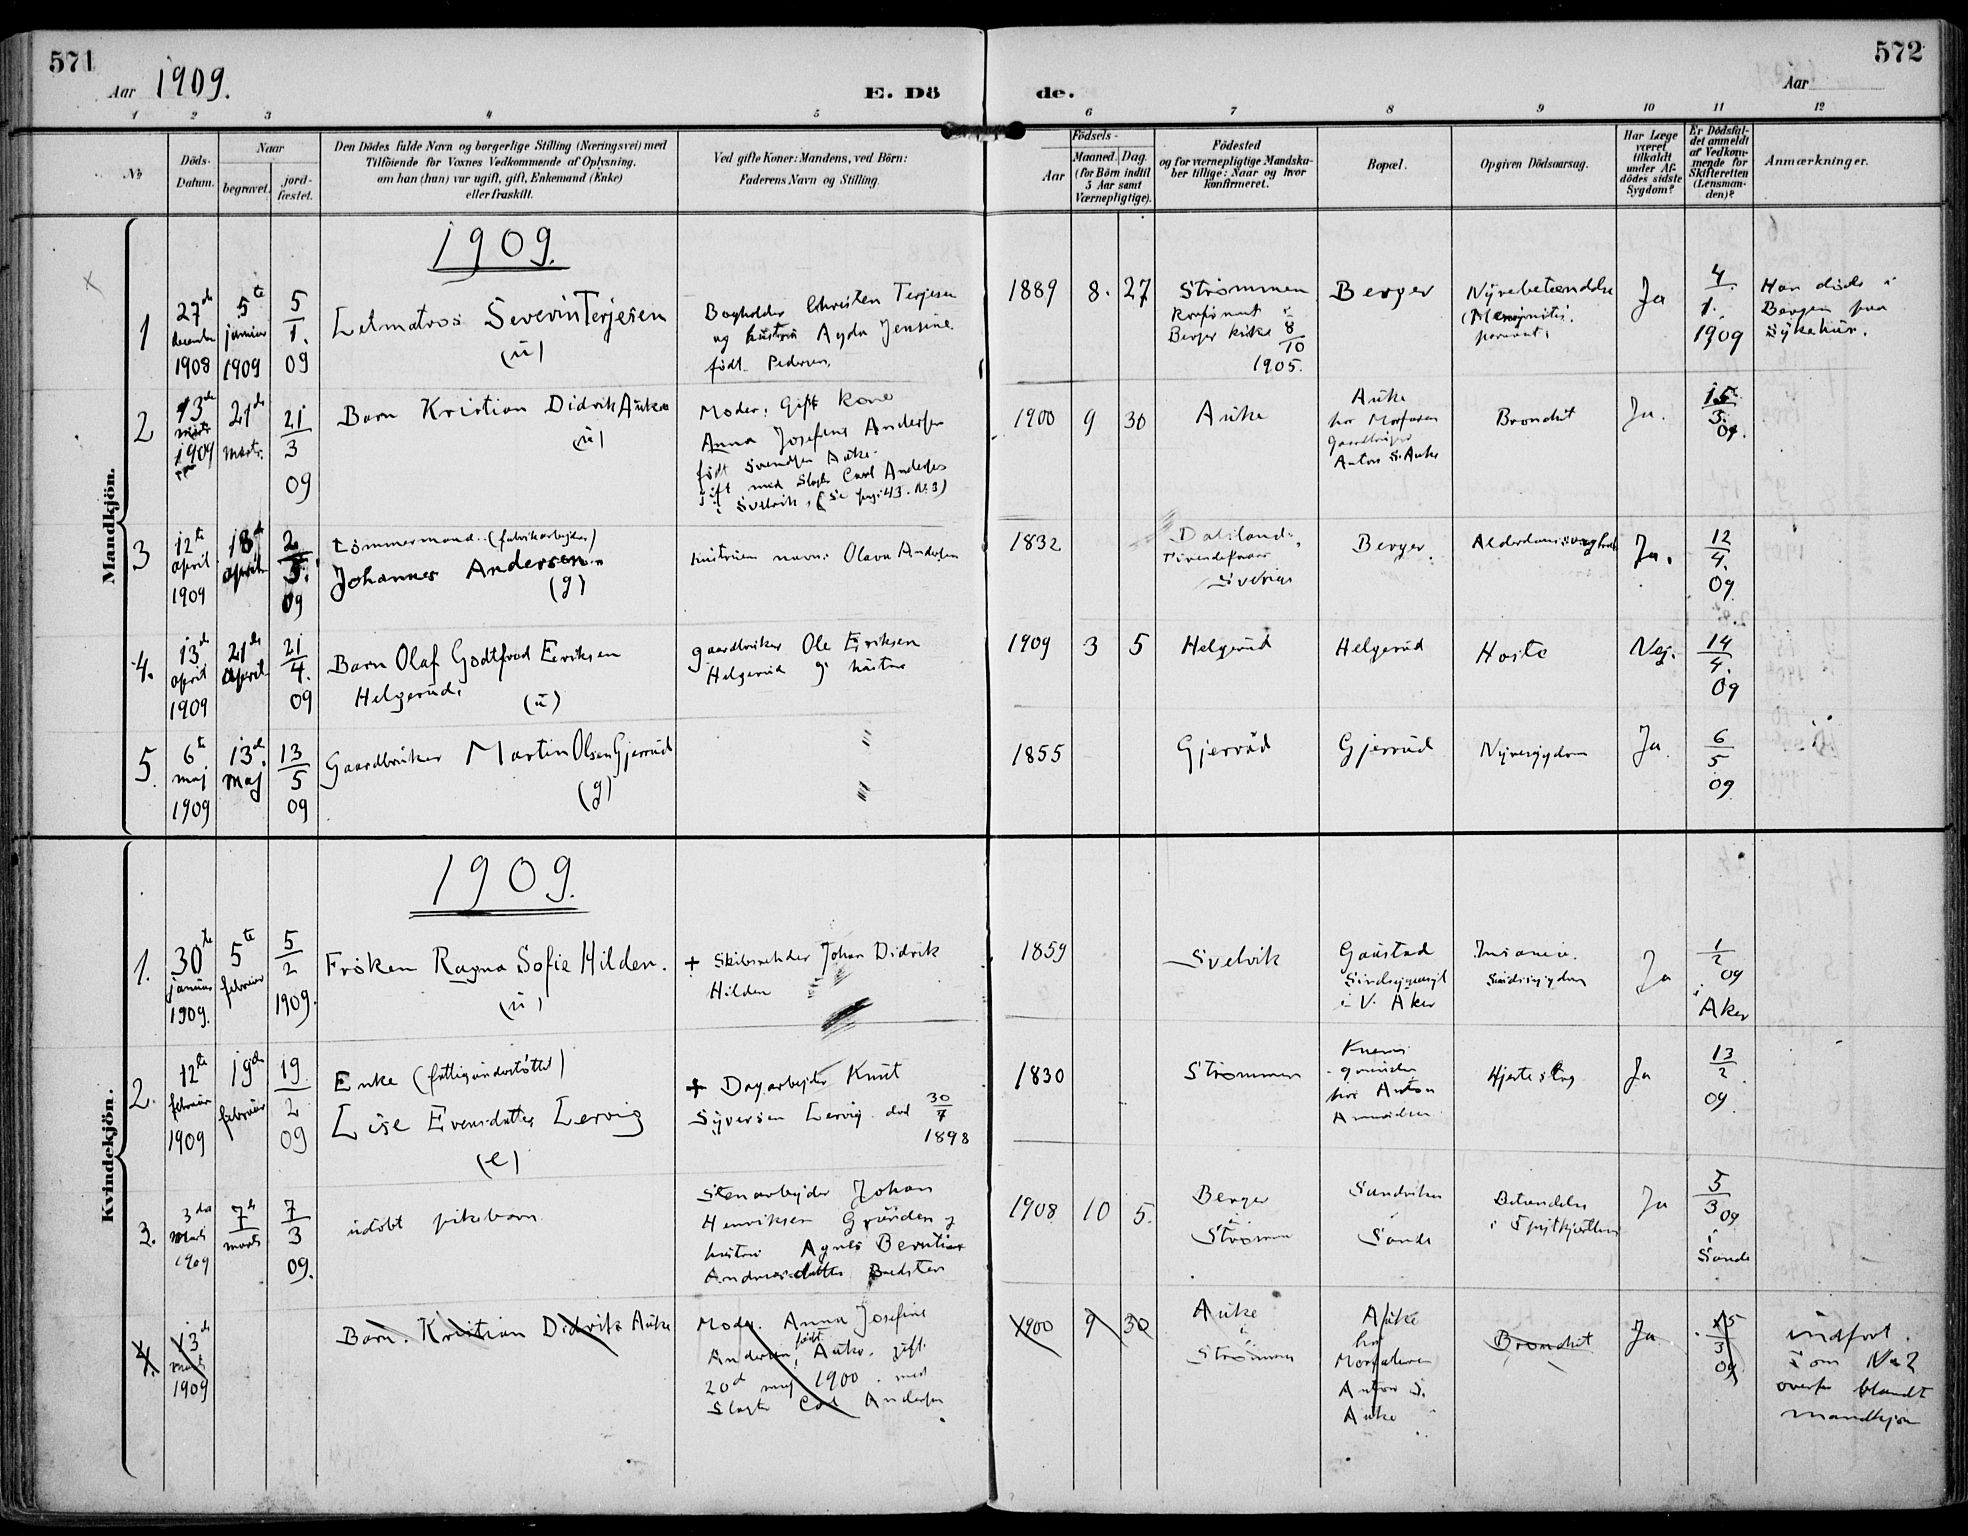 571
572
Aar 1909.
E. Dö
de.
Aar
1 2 3 4 5 6 7 8 9 10 11 12
No
Döds-
Datum.
Naar
begravet.
jord-
fæstet.
Den Dödes fulde Navn og borgerlige Stilling (Næringsvei) med
Tilföiende for Voxnes Vedkommende af Oplysning,
om han (hun) var ugift, gift, Enkemand (Enke)
eller fraskilt.
Ved gifte Koner: Mandens, ved Börn:
Faderens Navn og Stilling.
Födsels-
Aar
Maaned. Dag.
(for Börn indtil
5 Aar samt
Værnepligtige).
Födested
og for værnepligtige Mandska-
ber tillige: Naar og hvor
konfirmeret.
Bopæl.
Opgiven Dödsaarsag.
Har Læge
været
tilkaldt
under Af-
dödes sidste
Sygdom?
Er Dödsfal-
det anmeldt
af Vedkom-
mende for
Skifteretten
(Lensman-
den)?
Anmærkninger.
Mandkjön.
1909.
1
27de
december
1908
5te
januar
1909
5
1.
09
Letmatros Severin Terjesen
(u)
Bogholder Christen Terjesen
og hustru Agda Jensine
født Pedersen.
1889 8. 27
Strømmen
konfirmert i
Berger kirke 8
10
1905.
Berger
Nyrebetændelse
Ja
4
1.
1909
Han døde i
Bergen paa
sykehus.
2
13de
marts
1909
21de
marts.
21
3
09
Barn Kristian Didrik Auke
(u)
Moder: Gift kone
Anna Josefine Andersen
født Svendsen Auke.
gift med Slagter Carl Andersen
i Svelvik, (se pag. 43. No 3)
1900 9 30
Auke
Auke
hos Morfaren
Gaardbruger
Anton S. Auke
Bronchit
Ja.
15
3.
09.
3
12te
april
1909
18de
april
2
5.
09
Tømmermand (fabrikarbejder)
Johannes Andersen
(g)
hustruens navn: Olava Andersen
1832
Dalsland,
Sverige
Berger
Alderdomssvaghed
Ja.
12
4.
09.
4.
13de
april
1909
21de
april
21
4.
09
Barn Olaf Godtfred Eriksen
Helgerud.
(u)
gaardbruker Ole Eriksen
Helgerud g hustru
1909 3 5
Helgerud
Helgerud
Hoste
Nej.
14
4.
09
5.
6te
maj
1909
13de
maj
13
5
09
Gaardbruker Martin Olsen Gjerrud
(g)
1855
Gjerrud
Gjerrud
Nyresygdom
Ja.
6
5
09
Kvindekjön.
1909.
1.
30te
januar
1909.
5te
februar
5
2
1909.
Frøken Ragna Sofie Hilden.
(u)
+ Skibsrehder Johan Didrik
Hilden
1859
Svelvik
Gaustad
Sindsygeasyl
i V. Aker
Insania.
Sindssygdom
Ja
1
2
09
i
Aker
2.
12te
februar
1909
19de
februar
19
2
09
Enke (fattigunderstøttet)
Lise Evensdatter Lervig
(e)
+ Dagarbejder Knut
Syversen Lervig død 30
7
1898
1830
Strømmen
hos Anton
Hjerteslag
Ja
13
2.
09.
3.
3die
marts
1909
7de
marts
7
3
09.
udøbt pikebarn
Stenarbejder Johan
Henriksen Grunden g
hustru Agnes Berntine
Andreasdatter
1908 10 5.
Berger
i
Strømm
Sandviken
i
Sande
Betændelse
i Spytkjertlen
Ja
5
3 09
i
Sande
4.
13de
marts
1909
Barn. Kristian Didrik Auke
Moder. Anna Josefine
Andersen, født Auke. gift.
20de maj 1900. med
Slagter Carl Andersen
1900 9 30
Auke
i
Strømmen
Auke
hos
Morfaderen
Anton S.
Auke
Bronchit
Ja
15
3
09
indført.
som No 2
ovenfor blandt
mandkjøn